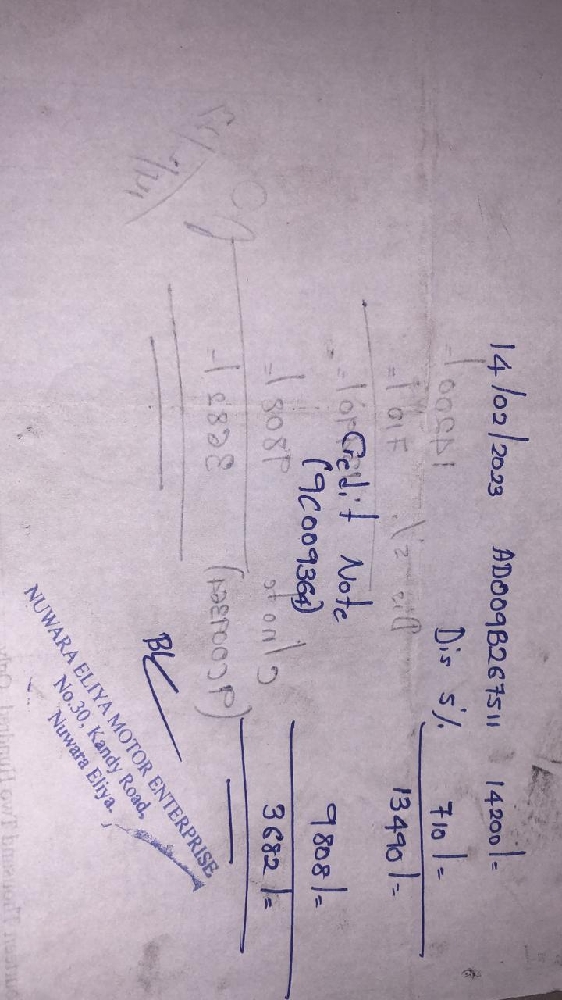 14/02/2023 AD009B267511 14200/=
Dis 5% 710/=
13490/=
Credit Note
(9C009364) 9808/=
3682/=
BL
NUWARA ELIYA MOTOR ENTERPRISE
No.30, Kandy Road,
Nuwara Eliya.